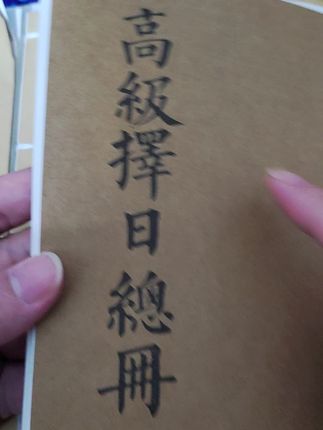 高級擇日總冊